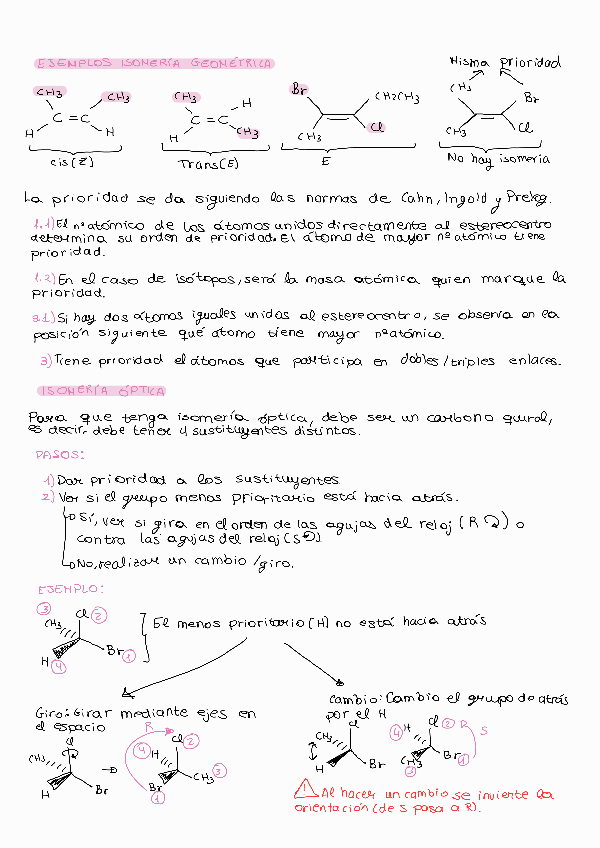 EJEMPLOS ISOMERÍA GEOMÉTRICA
Misma prioridad
CH3 CH3 CH3 H Br CH2CH3 CH3 Br
C = C C = C
H H H CH3 CH3 Cl CH3 Cl
cis(Z) Trans(E) E No hay isomería
La prioridad se da siguiendo las normas de Cahn, Ingold y Prelog.
1.1) El nº atómico de los átomos unidos directamente al estereocentro
determina su orden de prioridad. El átomo de mayor nº atómico tiene
prioridad.
1.2) En el caso de isótopos, será la masa atómica quien marque la
prioridad.
2.1) Si hay dos átomos iguales unidos al estereocentro, se observa en la
posición siguiente qué átomo tiene mayor nº atómico.
3) Tiene prioridad el átomos que participa en dobles/triples enlaces.
ISOMERÍA ÓPTICA
Para que tenga isomería óptica, debe ser un carbono quiral,
es decir, debe tener 4 sustituyentes distintos.
PASOS:
1) Dar prioridad a los sustituyentes
2) Ver si el grupo menos prioritario está hacia atrás.
Sí, ver si gira en el orden de las agujas del reloj (R ↻) o
contra las agujas del reloj (S ↺)
No, realizar un cambio/giro.
EJEMPLO:
3 Cl 2
CH3
H 4 Br 1
El menos prioritario (H) no está hacia atrás
Giro: Girar mediante ejes en
el espacio
Cl
CH3
H Br
R
4 Cl 2
H
Br CH3 3
1
Cambio: Cambio el grupo de atrás
por el H
Cl
CH3
H Br
4 Cl 2 R S
H
CH3 Br 1
3
! Al hacer un cambio se invierte la
orientación (de S pasa a R).